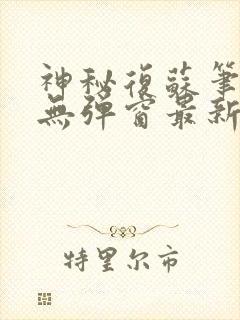 神秘復蘇筆
無彈窗最新
特里尔市